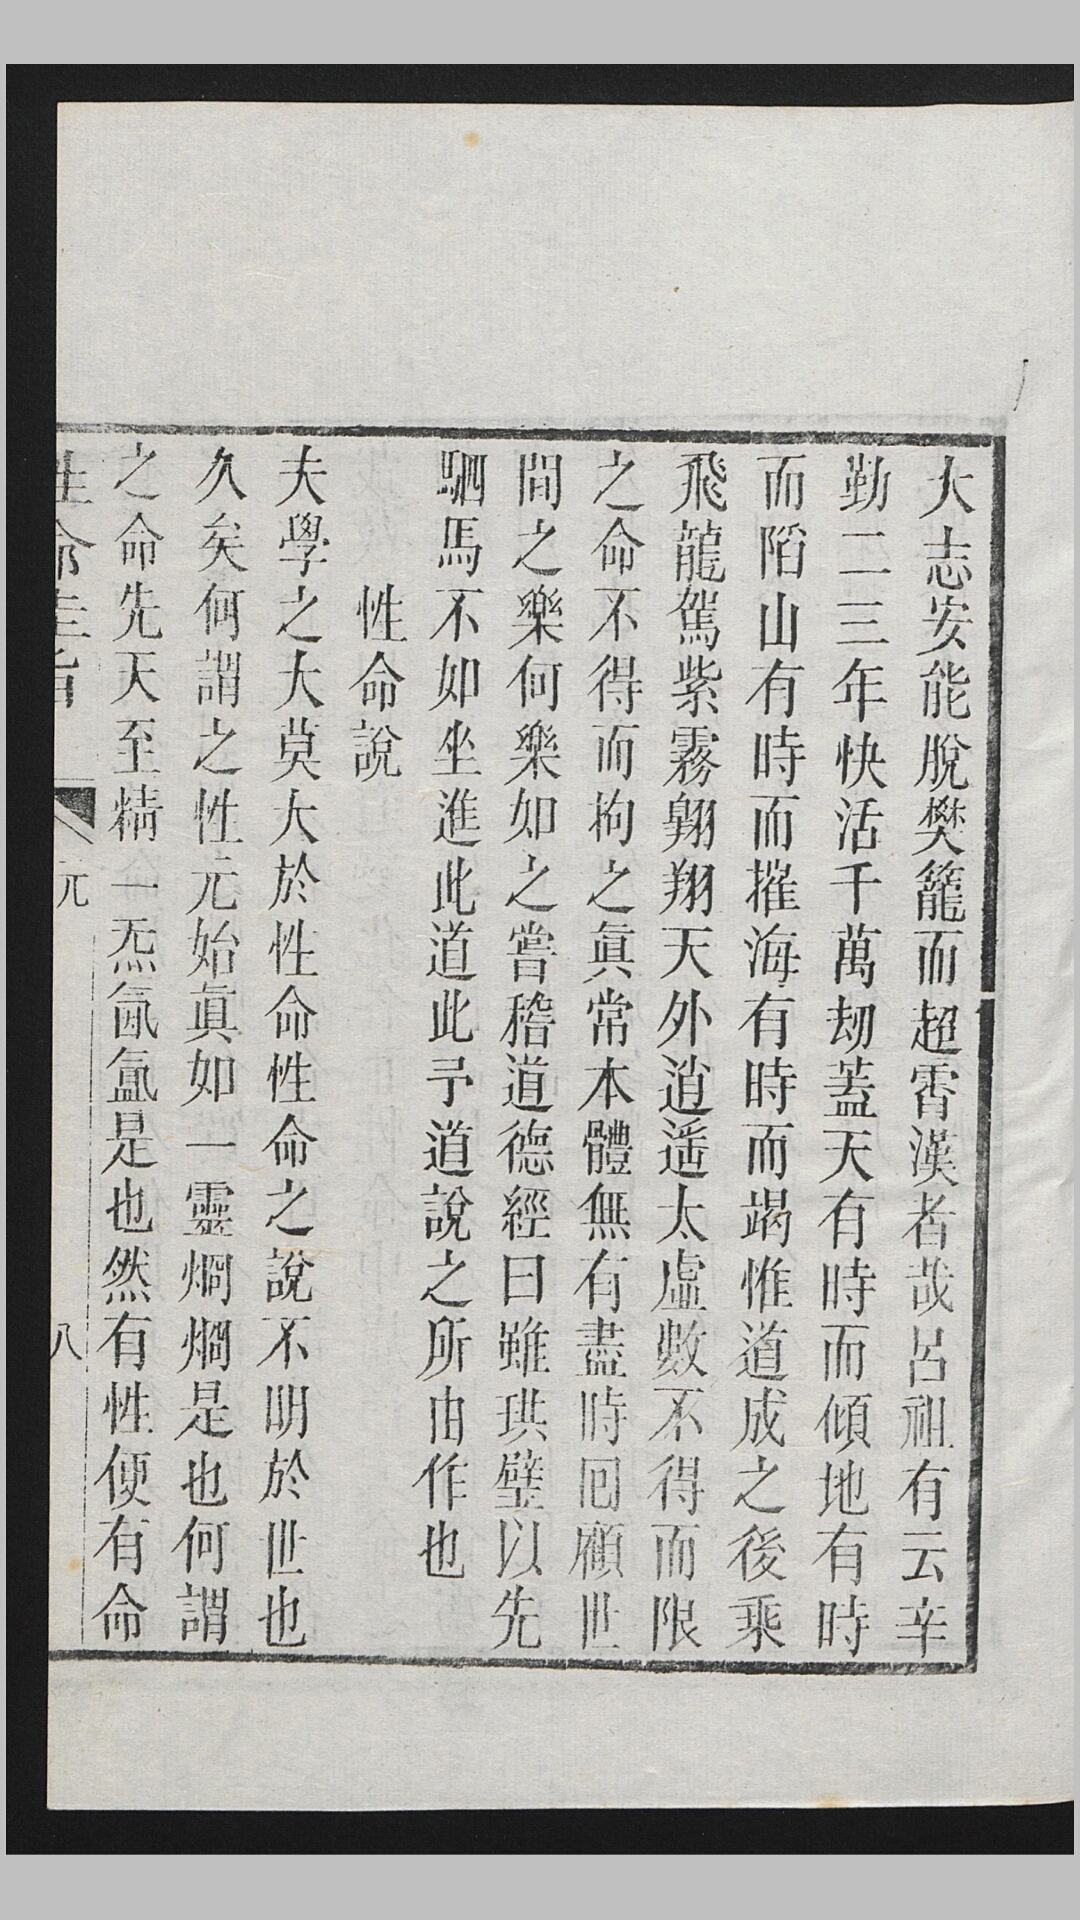 大志安能脫樊籠而超霄漢者哉呂祖有云辛
勤二三年快活千萬刼蓋天有時而傾地有時
而䧟山有時而摧海有時而竭惟道成之後乘
飛龍駕紫霧翺翔天外逍遥太虛數不得而限
之命不得而拘之眞常本體無有盡時囘顧世
間之樂何樂如之嘗稽道德經曰雖珙璧以先
駟馬不如坐進此道此予道說之所由作也
性命說
夫學之大莫大於性命性命之說不明於世也
久矣何謂之性元始眞如一靈烱烱是也何謂
之命先天至精一炁氤氳是也然有性便有命
性命圭旨
元
八